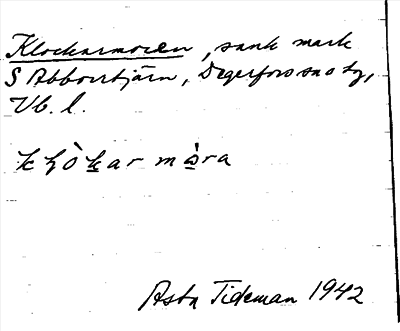 Klockarmoren, sank mark
S Abborrtjärn, Degerfors sn o ty,
Vb. l.
kḷò̀k̲ar mɷ̀ra
Asta Tideman 1942